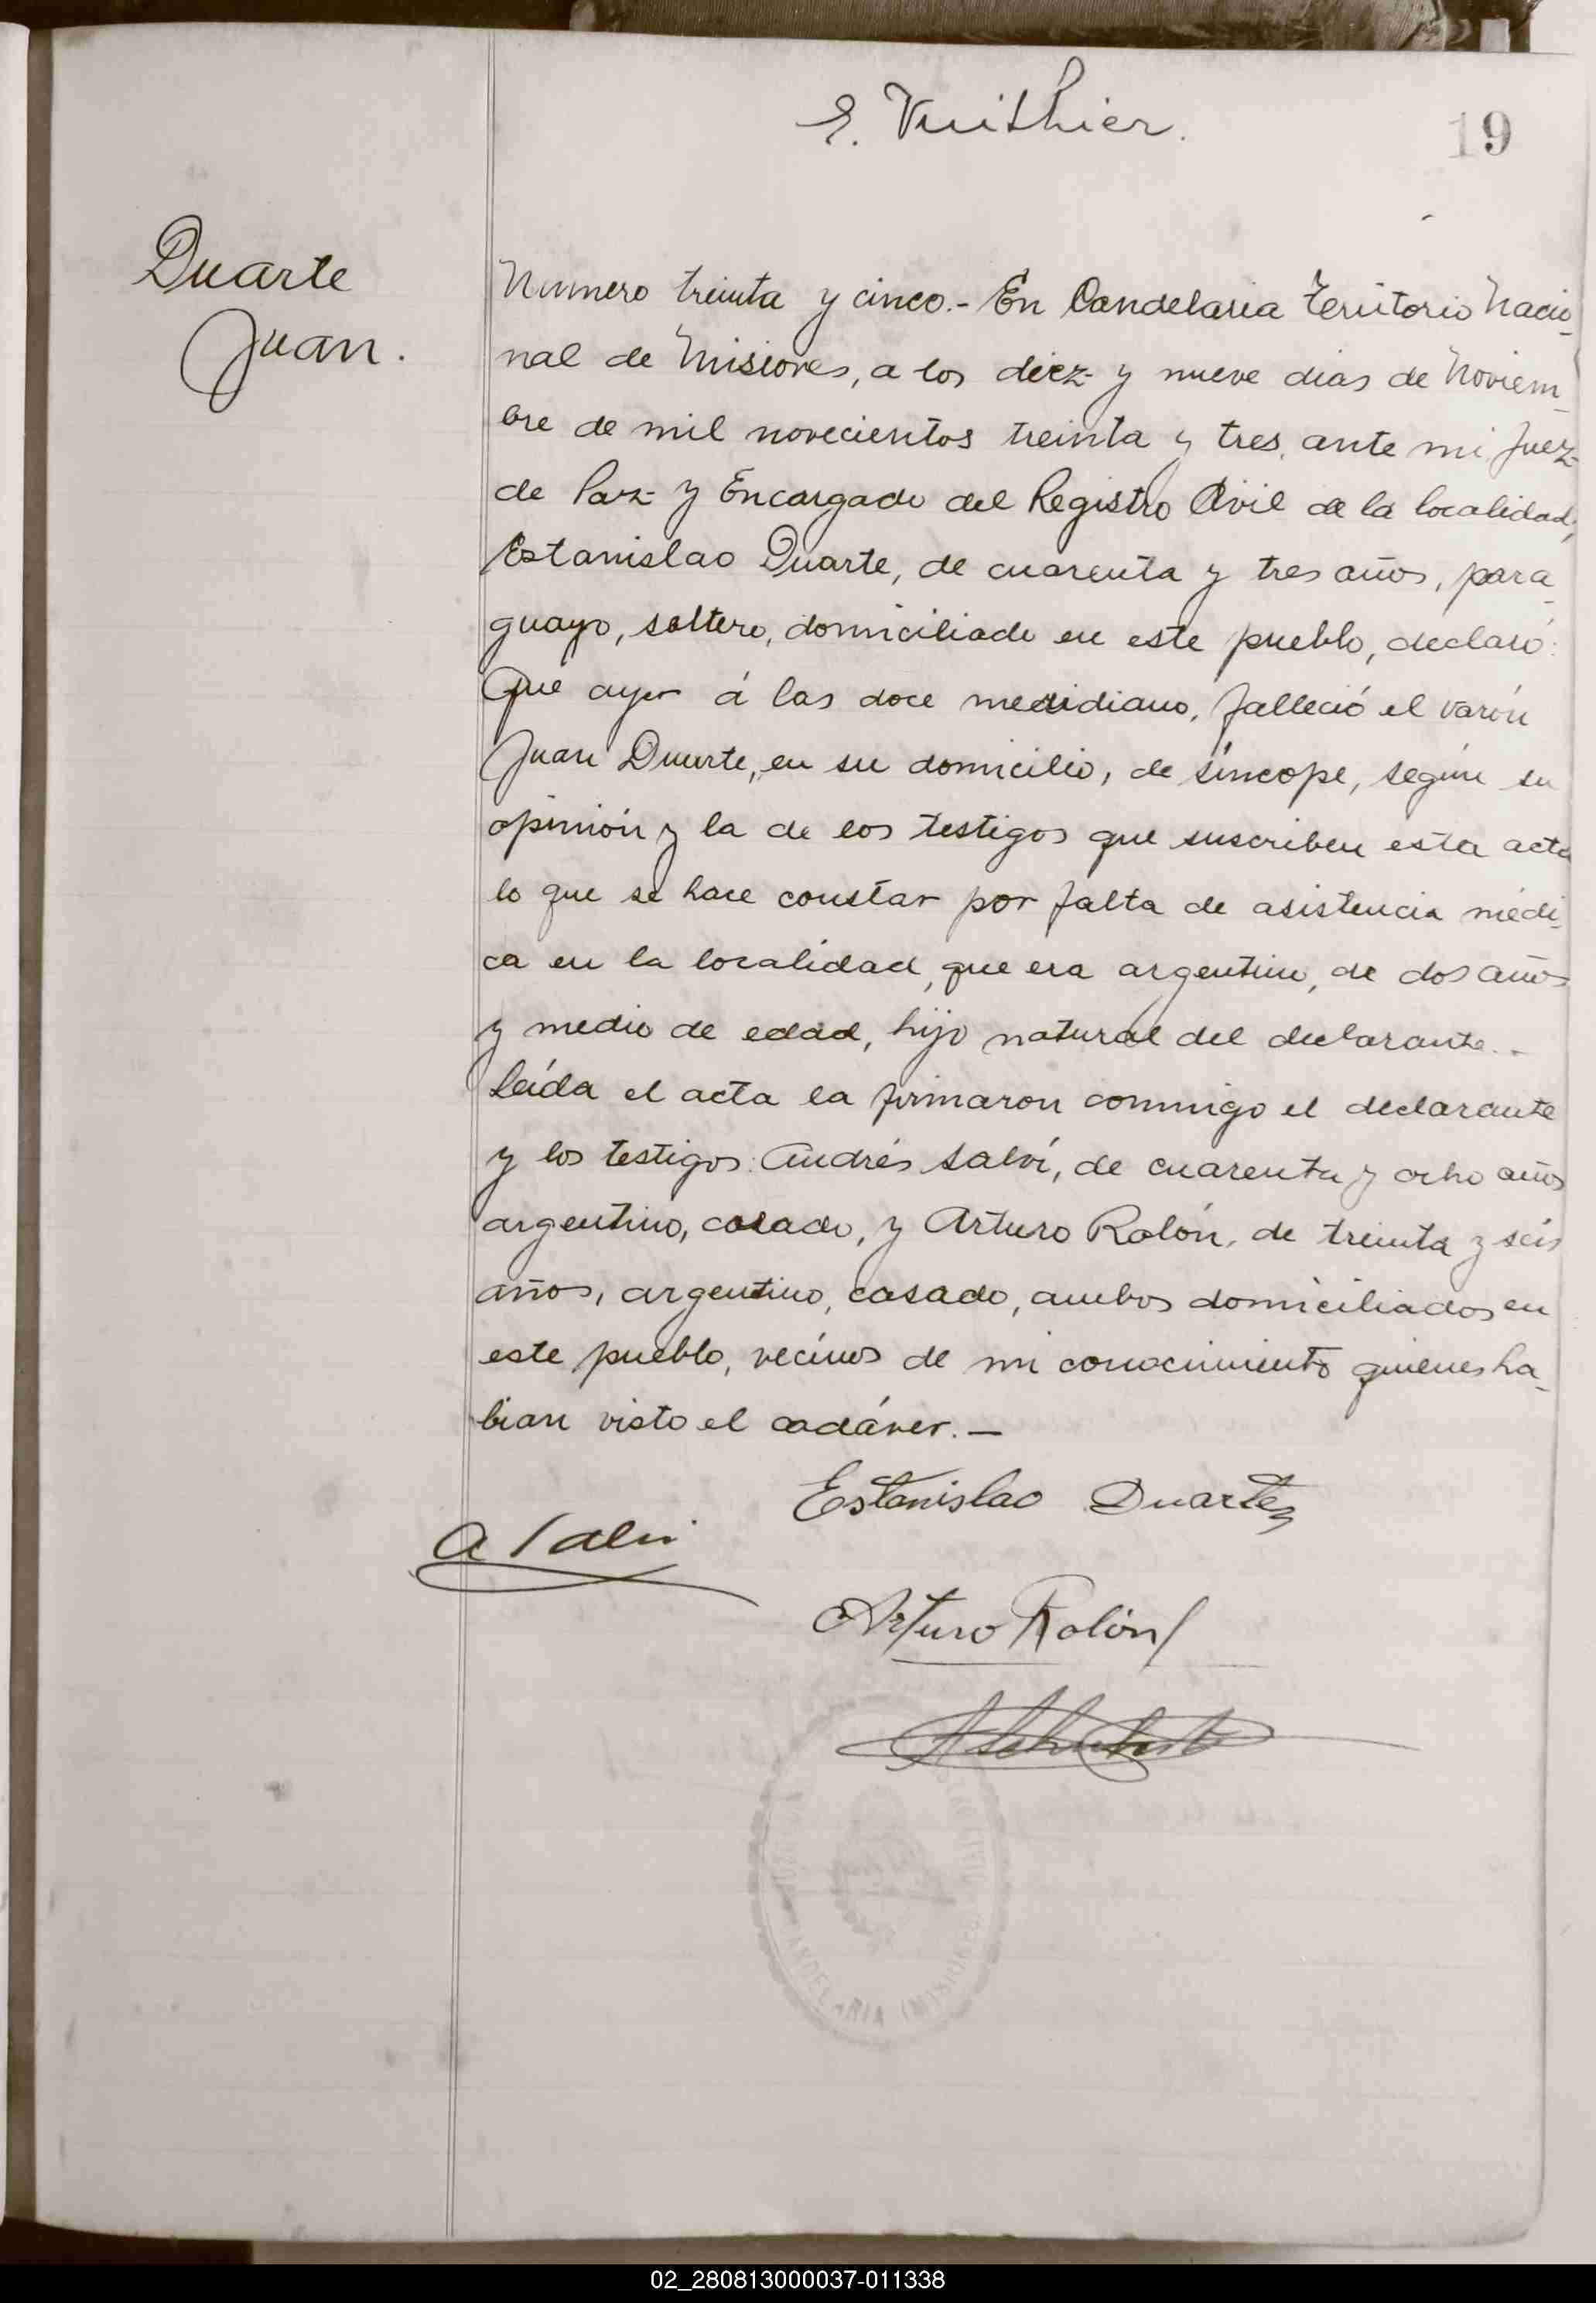 E. Vuithier.
19
Duarte
Juan.
Numero treinta y cinco.- En Candelaria Territorio Nacio-
nal de Misiones, a los diez y nueve dias de Noviem-
bre de mil novecientos treinta y tres, ante mi Juez
de Paz y Encargado del Registro Civil de la localidad,
Estanislao Duarte, de cuarenta y tres años, para-
guayo, soltero, domiciliado en este pueblo, declaró:
Que ayer á las doce meridiano, falleció el varón
Juan Duarte, en su domicilio, de síncope, según su
opinión y la de los testigos que suscriben esta acta
lo que se hace constar por falta de asistencia médi-
ca en la localidad, que era argentino, de dos años
y medio de edad, hijo natural del declarante.-
Leída el acta la firmaron conmigo el declarante
y los testigos: Andrés Salvi, de cuarenta y ocho años
argentino, casado, y Arturo Rolón, de treinta y seis
años, argentino, casado, ambos domiciliados en
este pueblo, vecinos de mi conocimiento quienes ha-
bian visto el cadáver.—
Estanislao Duarte
A Salvi
Arturo Rolón
CANDELARIA (MISIONES)
02_280813000037-011338